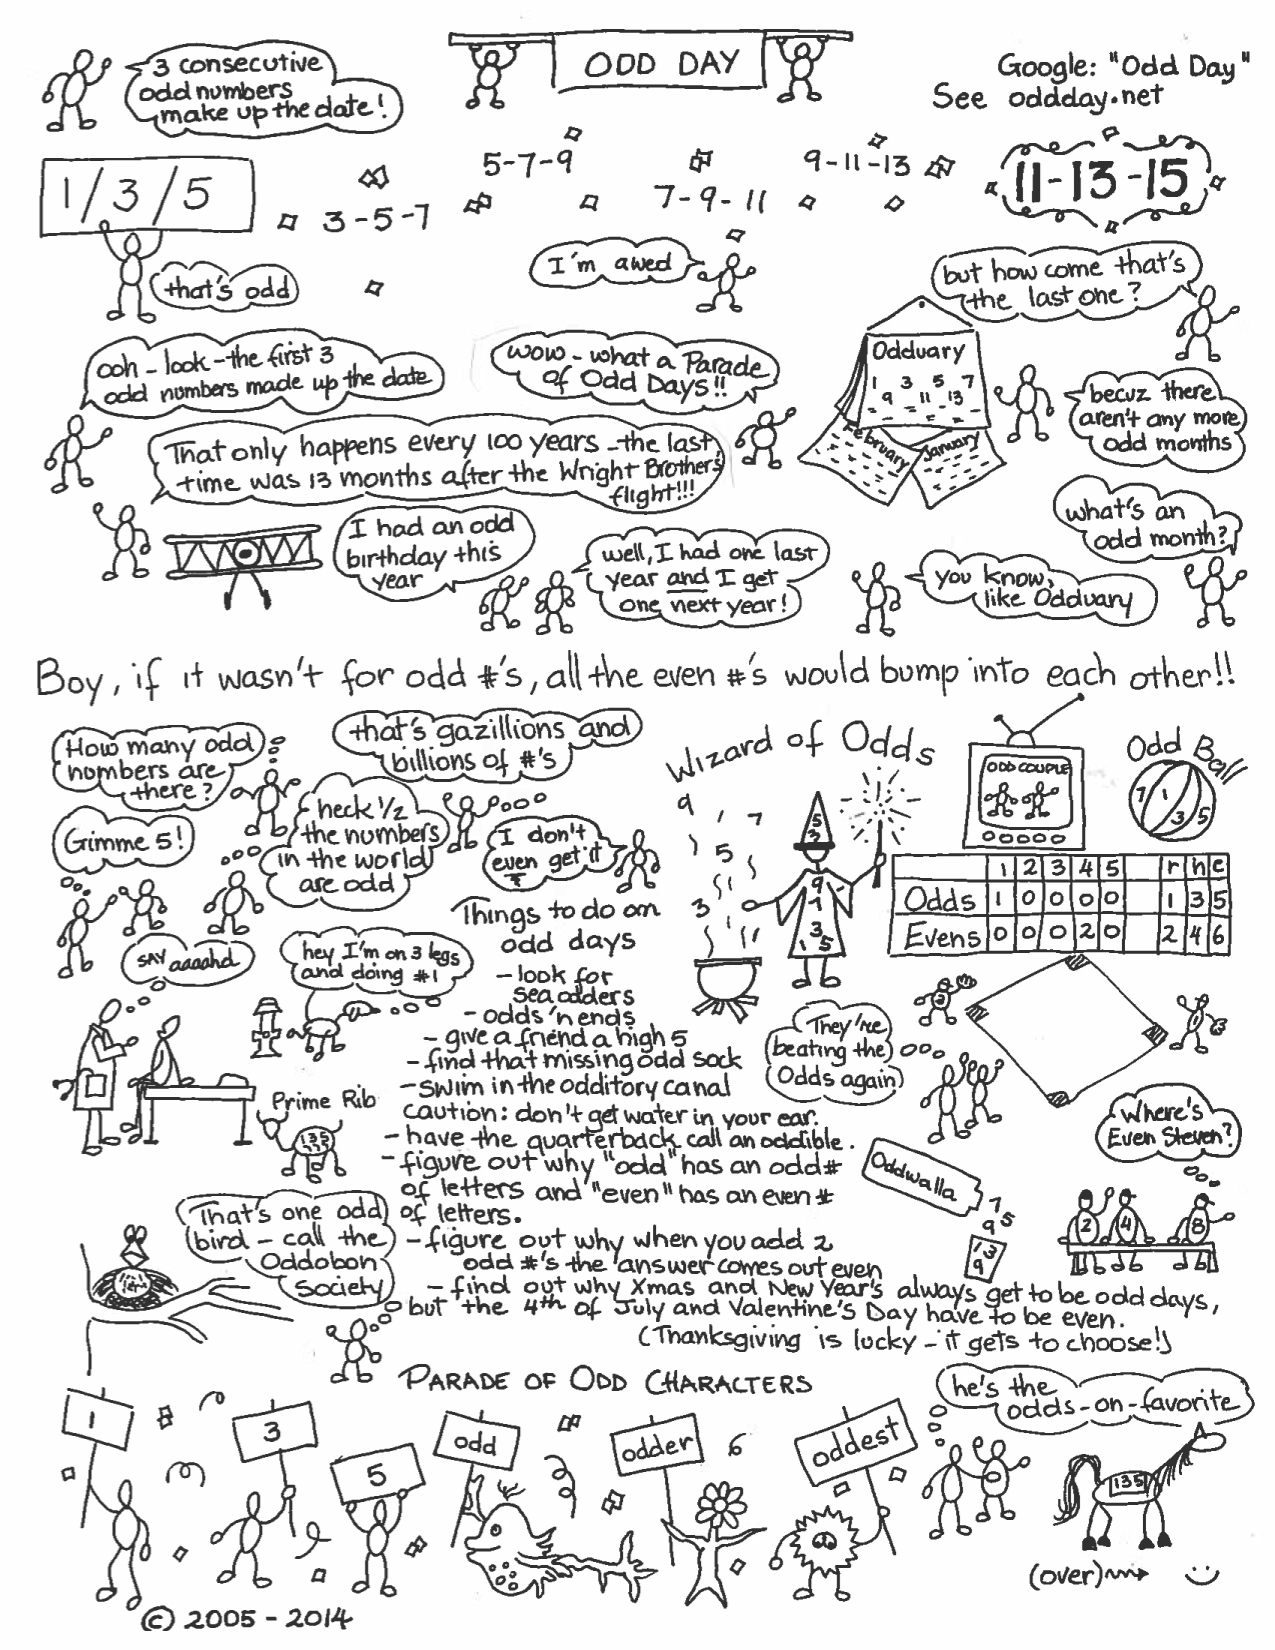 ODD DAY
Google: "Odd Day"
See oddday.net
3 consecutive
odd numbers
make up the date!
1/3/5
3-5-7
5-7-9
7-9-11
9-11-13
11-13-15
that's odd
I'm awed
but how come that's
the last one?
ooh - look - the first 3
odd numbers made up the date
wow - what a Parade
of Odd Days!!
Odduary
1 3 5 7
9 11 13
February
January
becuz there
aren't any more
odd months
That only happens every 100 years - the last
time was 13 months after the Wright Brothers'
flight!!!
what's an
odd month?
I had an odd
birthday this
year
well, I had one last
year and I get
one next year!
you know,
like Odduary
Boy, if it wasn't for odd #'s, all the even #'s would bump into each other!!
How many odd
numbers are
there?
that's gazillions and
billions of #'s
Gimme 5!
heck 1/2
the numbers
in the world
are odd
I don't
even get it
Wizard of Odds
9 1 7
5
3
5
3
9
7
3
1 5
ODD COUPLE
Odd Ball
7 1 3 5
1 2 3 4 5 r h e
Odds 1 0 0 0 0 1 3 5
Evens 0 0 0 2 0 2 4 6
SAY aaaahd
hey I'm on 3 legs
and doing #1
Things to do on
odd days
- look for
sea odders
- odds 'n ends
- give a friend a high 5
- find that missing odd sock
- swim in the odditory canal
caution: don't get water in your ear.
- have the quarterback call an oddible.
- figure out why "odd" has an odd #
of letters and "even" has an even #
of letters.
- figure out why when you add 2
odd #'s the answer comes out even
- find out why Xmas and New Year's always get to be odd days,
but the 4th of July and Valentine's Day have to be even.
(Thanksgiving is lucky - it gets to choose!)
They're
beating the
Odds again
3
1
Prime Rib
135
Where's
Even Steven?
2 4 8
Oddwalla
7
9 5
13
9
That's one odd
bird - call the
Oddobon
Society
PARADE OF ODD CHARACTERS
1
3
5
odd
odder
oddest
he's the
odds-on-favorite
135
(over)
© 2005 - 2014